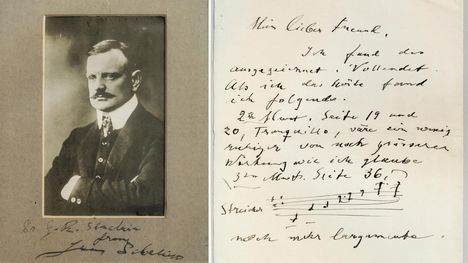 from
Jean Sibelius
Mein lieber Freund.
Ich fand das
ausgezeichnet. Vollendet.
Als ich das hörte fand
ich folgendes.
2ter Seite 19 und
20, Tranquillo, wäre ein wenig
ruhiger von noch grösserer
Wirkung wie ich glaube
3ter Seite 36,
Streicher
noch mehr largamente.